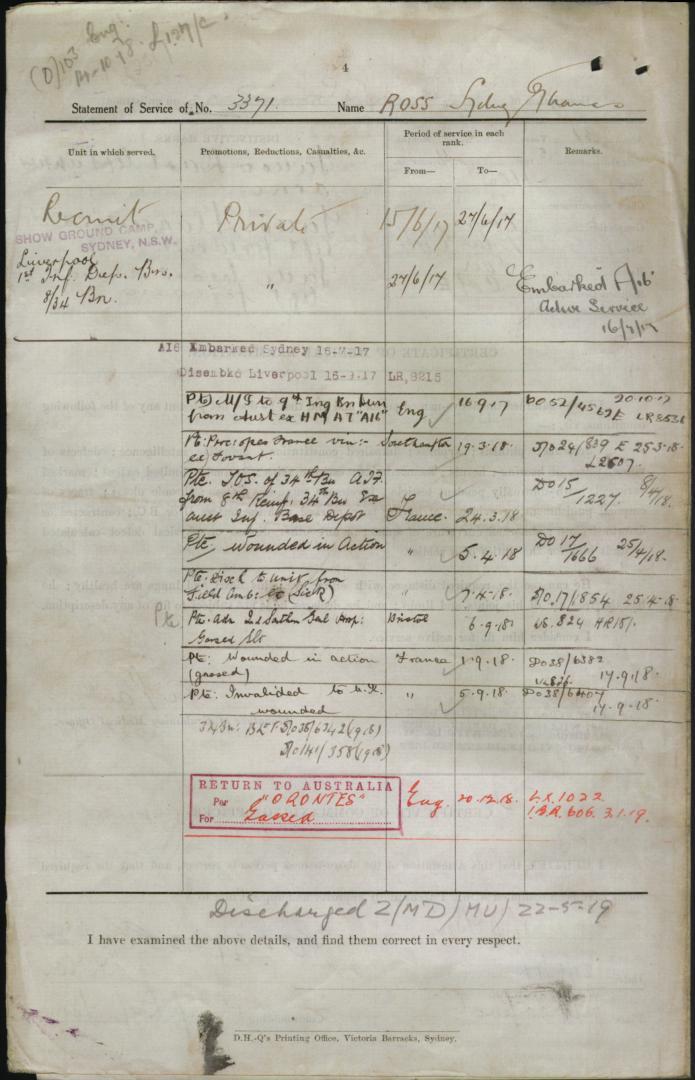 (O) 103 Eng:
14-10-18.
4
Statement of Service of No. 3371. Name ROSS Sydney Thomas
Unit in which served. Promotions, Reductions, Casualties, &c. Period of service in each rank. From— To— Remarks.
Recruit Private 15/6/17 27/6/17
SHOW GROUND CAMP,
SYDNEY, N.S.W.
Liverpool
1st Inf. Dep. Bn. " 27/6/17 Embarked A16
8/34 Bn. Active Service
16/7/17
A16 Embarked Sydney 16-7-17
Disembkd Liverpool 16-9-17 LR,8215
Pte M/I to 9th Tng Bn Eng 16.9.17 20.10.17
from Aust ex HMAT "A16"
Pte: Proc: o/seas France via:- Southampton 19.3.18. DO24/839 E 25-3-18-
Fovant.
Pte. TOS. of 34th Bn A.I.F. DO15/1227. 8/4/18.
from 8th Reinf. 34th Bn
Aust Inf. Base Depot France. 24.3.18
Pte, wounded in Action " 5.4.18 DO17/1666 25/4/18.
Pte. Disch to unit from
Field Amb: (Sick) " 7.4.18. DO.17/1854 25.4.18.
Pte Pte. Adm 2d Sthn Genl Hosp: Bristol 6.9.18 WS.824
Gassed
Pte: Wounded in action France 1.9.18. DO38/6382
(gassed) 17.9.18.
Pte: Invalided to U.K. " 5.9.18. DO38/6407
wounded 17-9-18.
34/Bn:
RETURN TO AUSTRALIA
Per "ORONTES" Eng. 20.12.18. L.X.1022
For Gassed 1.B.R.606. 3.1.19.
Discharged 2/MD/MU/22-5-19
I have examined the above details, and find them correct in every respect.
D.H.-Q's Printing Office, Victoria Barracks, Sydney.